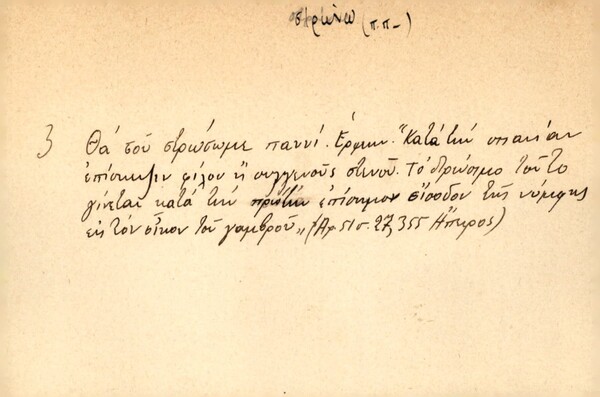 στρώνω (π.π-)
3 Θά σοῦ στρώσωμε παννί. Ἑρμην. "Κατά τήν σπανίαν
ἐπίσκεψιν φίλου ἤ συγγενοῦς στενοῦ. Τό στρώσιμο τοῦτο
γίνεται κατά τήν πρώτην ἐπίσημον εἴσοδον τῆς νύμφης
εἰς τόν οἶκον τοῦ γαμβροῦ„ (Ἀρ. 51 σ. 27, 355 Ἤπειρος)